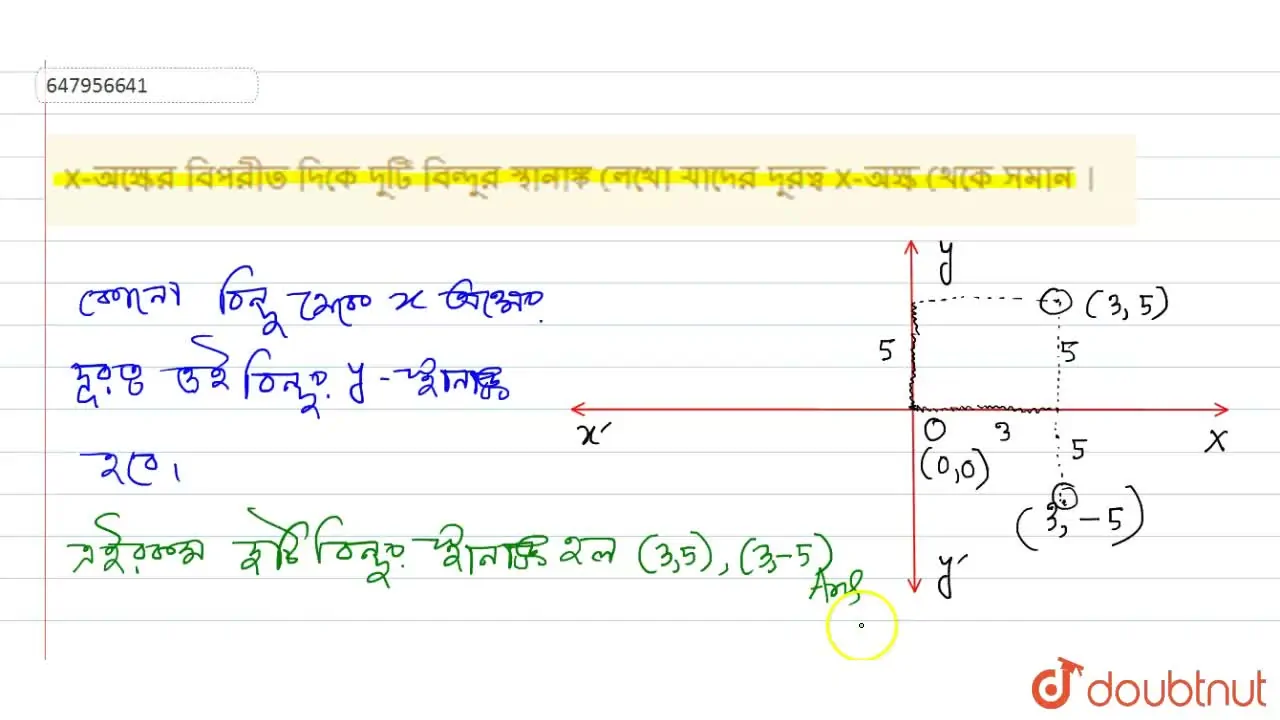 647956641
x-অক্ষের বিপরীত দিকে দুটি বিন্দুর স্থানাঙ্ক লেখো যাদের দূরত্ব x-অক্ষ থেকে সমান ।
কোনো বিন্দু থেকে x অক্ষের
দূরত্ব ওই বিন্দুর y-স্থানাঙ্ক
হবে।
এইরকম দুটি বিন্দুর স্থানাঙ্ক হল (3,5), (3,-5)
Ans
y
(3, 5)
5
5
x'
O
3
5
X
(0,0)
(3, -5)
y'
doubtnut